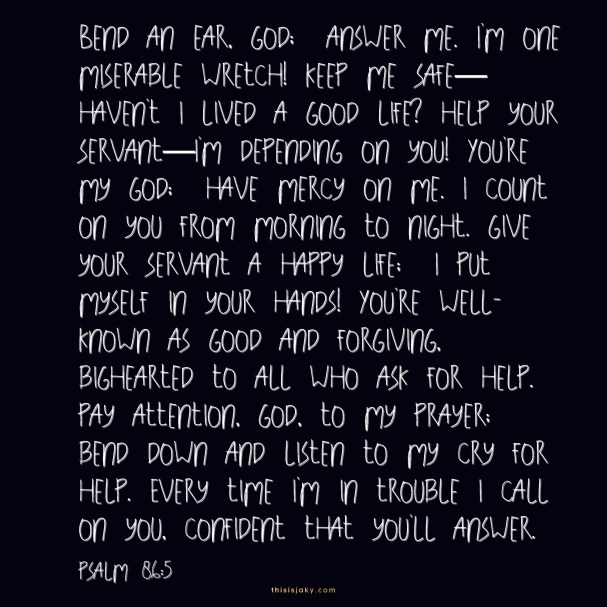 BEND AN EAR, GOD; ANSWER ME. I'M ONE
MISERABLE WRETCH! KEEP ME SAFE—
HAVEN'T I LIVED A GOOD LIFE? HELP YOUR
SERVANT—I'M DEPENDING ON YOU! YOU'RE
MY GOD; HAVE MERCY ON ME. I COUNT
ON YOU FROM MORNING TO NIGHT. GIVE
YOUR SERVANT A HAPPY LIFE; I PUT
MYSELF IN YOUR HANDS! YOU'RE WELL-
KNOWN AS GOOD AND FORGIVING,
BIGHEARTED TO ALL WHO ASK FOR HELP.
PAY ATTENTION, GOD, TO MY PRAYER;
BEND DOWN AND LISTEN TO MY CRY FOR
HELP. EVERY TIME I'M IN TROUBLE I CALL
ON YOU, CONFIDENT THAT YOU'LL ANSWER.
PSALM 86:5
thisisjaky.com